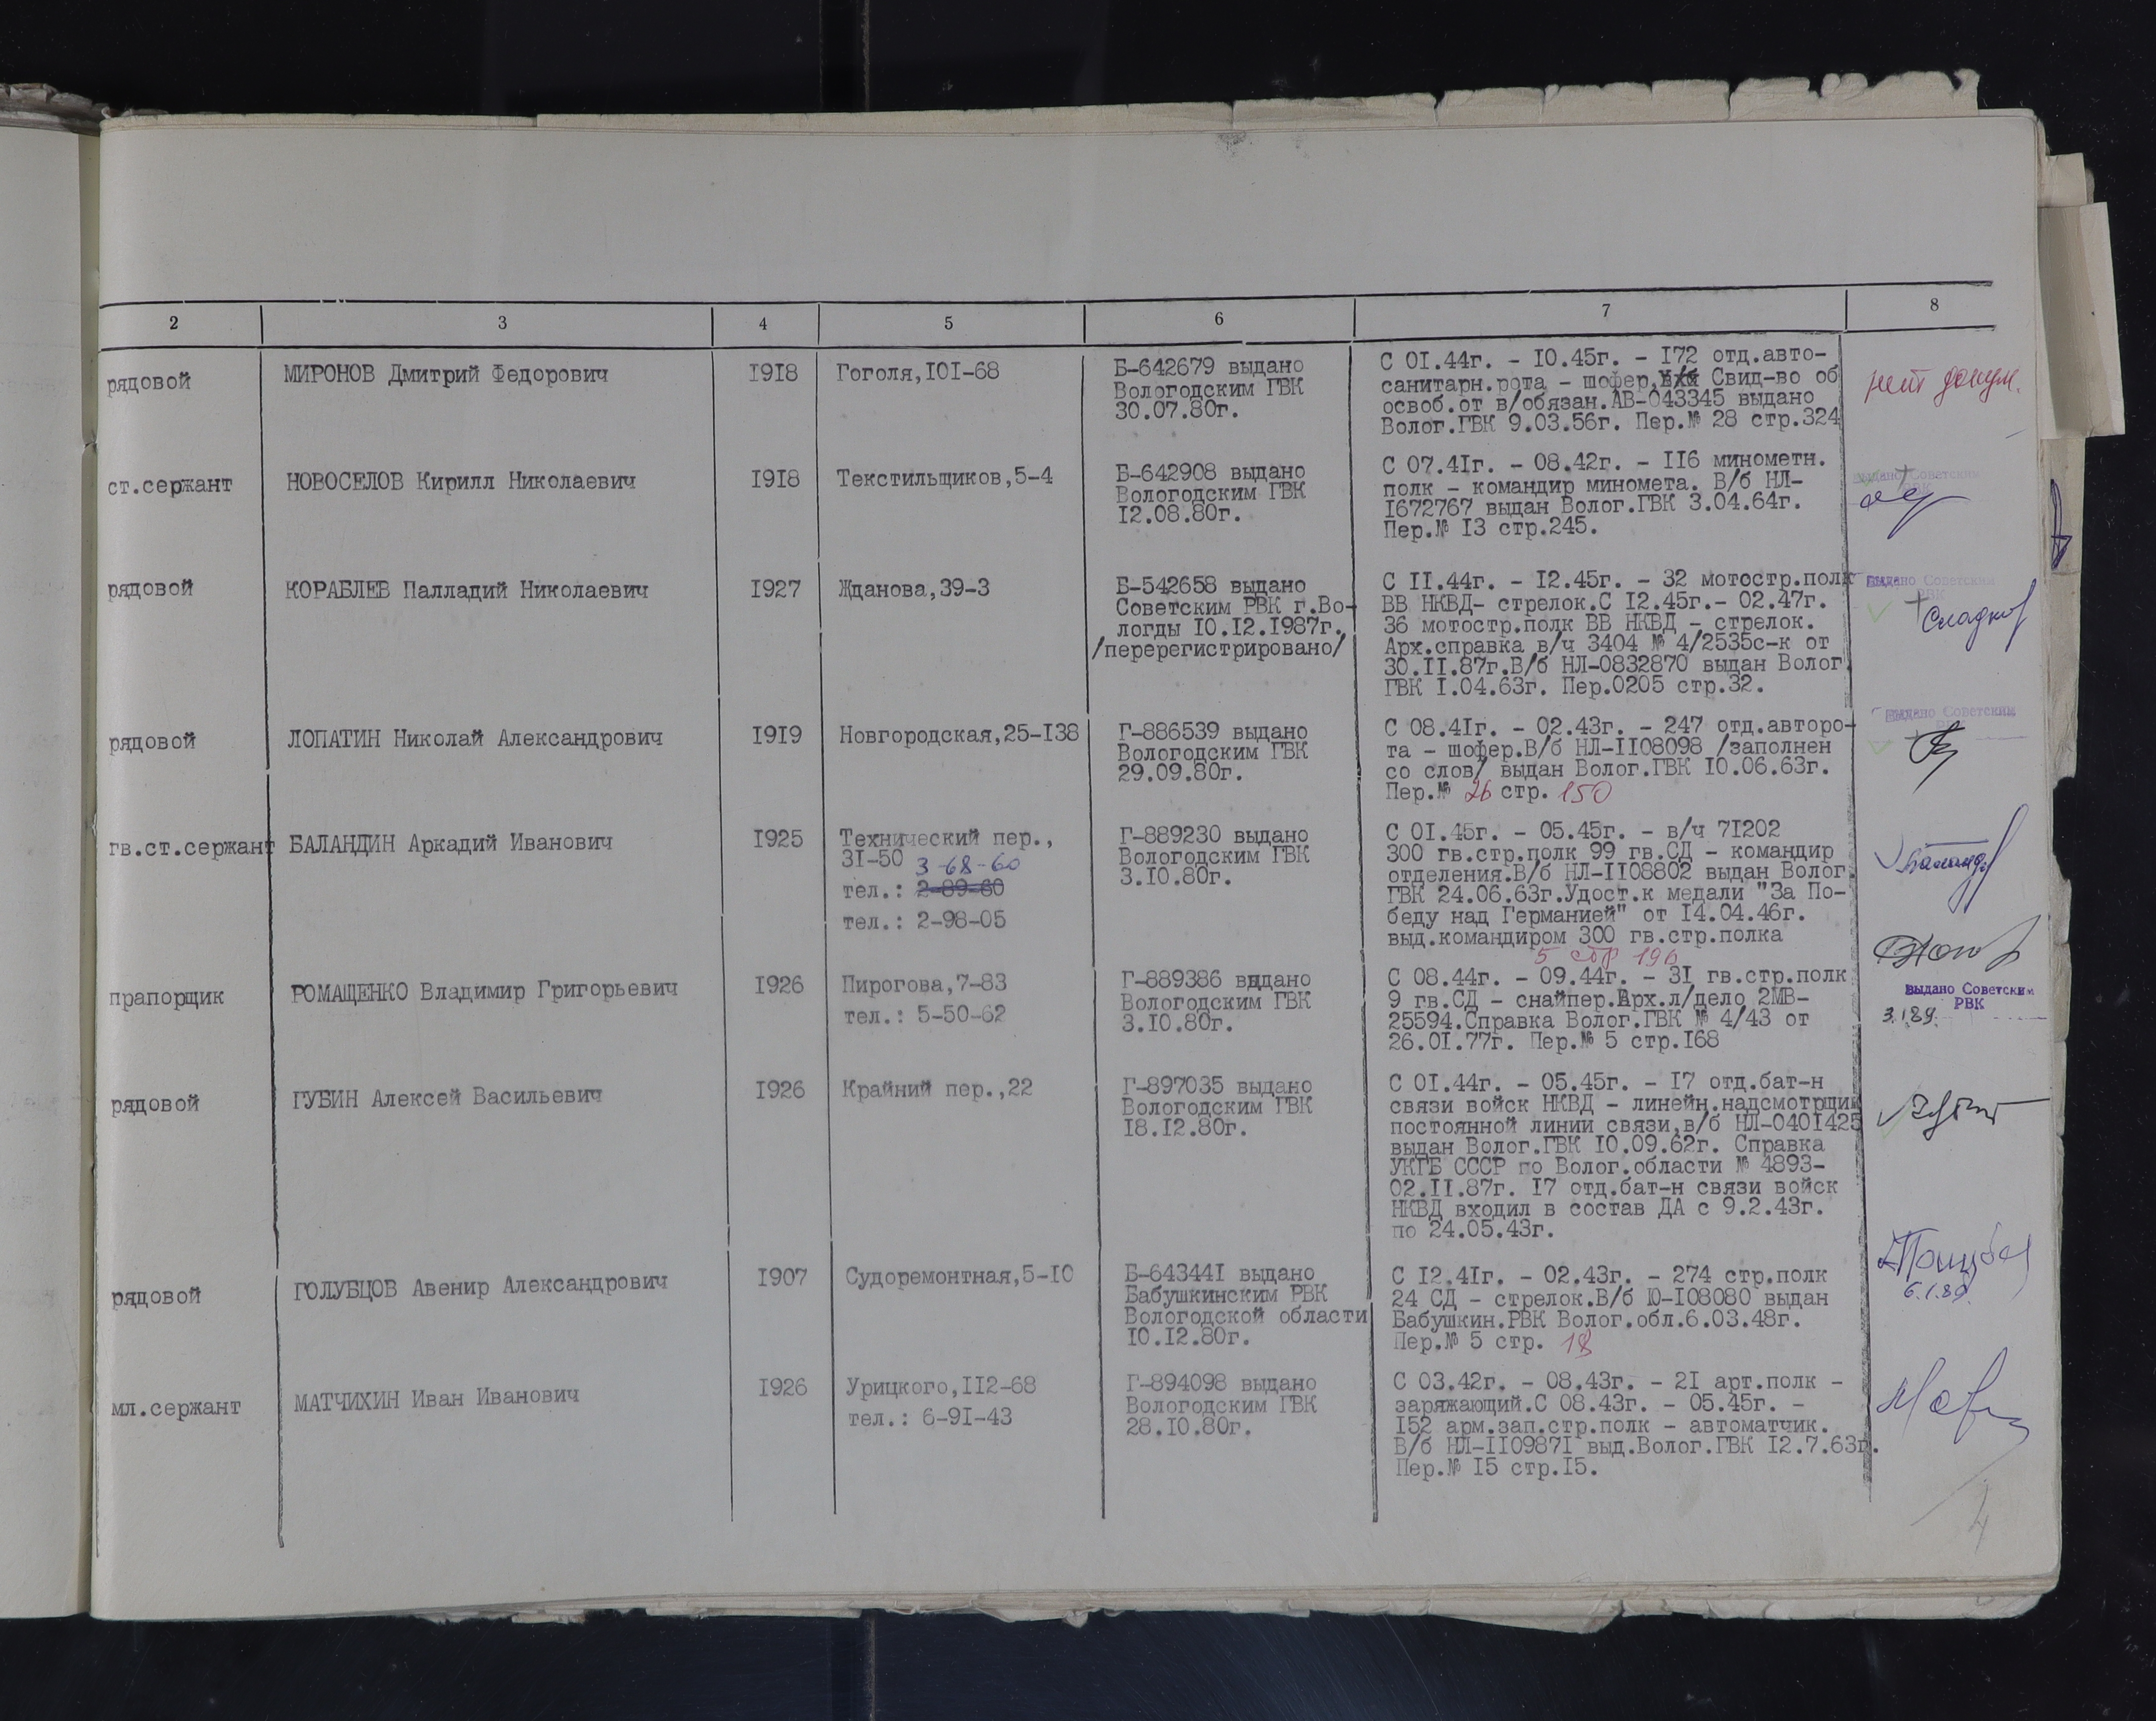 2 3 4 5 6 7 8
рядовой
МИРОНОВ Дмитрий Федорович
1918
Гоголя,101-68
Б-642679 выдано
Вологодским ГВК
30.07.80г.
С 01.44г. - 10.45г. - 172 отд.авто-
санитарн.рота - шофер, Свид-во об
освоб.от в/обязан.АВ-043345 выдано
Волог.ГВК 9.03.56г. Пер.№ 28 стр.324
нет докум.
ст.сержант
НОВОСЕЛОВ Кирилл Николаевич
1918
Текстильщиков,5-4
Б-642908 выдано
Вологодским ГВК
12.08.80г.
С 07.41г. - 08.42г. - 116 минометн.
полк - командир миномета. В/б НЛ-
1672767 выдан Волог.ГВК 3.04.64г.
Пер.№ 13 стр.245.
выдано Советским
РВК
рядовой
КОРАБЛЕВ Палладий Николаевич
1927
Жданова,39-3
Б-542658 выдано
Советским РВК г.Во-
логды 10.12.1987г.
/перерегистрировано/
С 11.44г. - 12.45г. - 32 мотостр.полк
ВВ НКВД- стрелок.С 12.45г.- 02.47г.
36 мотостр.полк ВВ НКВД - стрелок.
Арх.справка в/ч 3404 № 4/2535с-к от
30.11.87г.В/б НЛ-0832870 выдан Волог.
ГВК 1.04.63г. Пер.0205 стр.32.
выдано Советским
РВК
рядовой
ЛОПАТИН Николай Александрович
1919
Новгородская,25-138
Г-886539 выдано
Вологодским ГВК
29.09.80г.
С 08.41г. - 02.43г. - 247 отд.авторо-
та - шофер.В/б НЛ-1108098 /заполнен
со слов/ выдан Волог.ГВК 10.06.63г.
Пер.№ 26 стр. 150
выдано Советским
РВК
гв.ст.сержант
БАЛАНДИН Аркадий Иванович
1925
Технический пер.,
31-50 3-68-60
тел.: 2-89-60
тел.: 2-98-05
Г-889230 выдано
Вологодским ГВК
3.10.80г.
С 01.45г. - 05.45г. - в/ч 71202
300 гв.стр.полк 99 гв.СД - командир
отделения.В/б НЛ-1108802 выдан Волог.
ГВК 24.06.63г.Удост.к медали "За По-
беду над Германией" от 14.04.46г.
выд.командиром 300 гв.стр.полка
5 стр 196
прапорщик
РОМАЩЕНКО Владимир Григорьевич
1926
Пирогова,7-83
тел.: 5-50-62
Г-889386 выдано
Вологодским ГВК
3.10.80г.
С 08.44г. - 09.44г. - 31 гв.стр.полк
9 гв.СД - снайпер.Арх.л/дело 2МВ-
25594.Справка Волог.ГВК № 4/43 от
26.01.77г. Пер.№ 5 стр.168
выдано Советским
РВК
3.1.89.
рядовой
ГУБИН Алексей Васильевич
1926
Крайний пер.,22
Г-897035 выдано
Вологодским ГВК
18.12.80г.
С 01.44г. - 05.45г. - 17 отд.бат-н
связи войск НКВД - линейн.надсмотрщик
постоянной линии связи,в/б НЛ-0401425
выдан Волог.ГВК 10.09.62г. Справка
УКГБ СССР по Волог.области № 4893-
02.11.87г. 17 отд.бат-н связи войск
НКВД входил в состав ДА с 9.2.43г.
по 24.05.43г.
рядовой
ГОЛУБЦОВ Авенир Александрович
1907
Судоремонтная,5-10
Б-643441 выдано
Бабушкинским РВК
Вологодской области
10.12.80г.
С 12.41г. - 02.43г. - 274 стр.полк
24 СД - стрелок.В/б Ю-108080 выдан
Бабушкин.РВК Волог.обл.6.03.48г.
Пер.№ 5 стр. 18
6.1.89.
мл.сержант
МАТЧИХИН Иван Иванович
1926
Урицкого,112-68
тел.: 6-91-43
Г-894098 выдано
Вологодским ГВК
28.10.80г.
С 03.42г. - 08.43г. - 21 арт.полк -
заряжающий.С 08.43г. - 05.45г. -
152 арм.зап.стр.полк - автоматчик.
В/б НЛ-1109871 выд.Волог.ГВК 12.7.63г.
Пер.№ 15 стр.15.